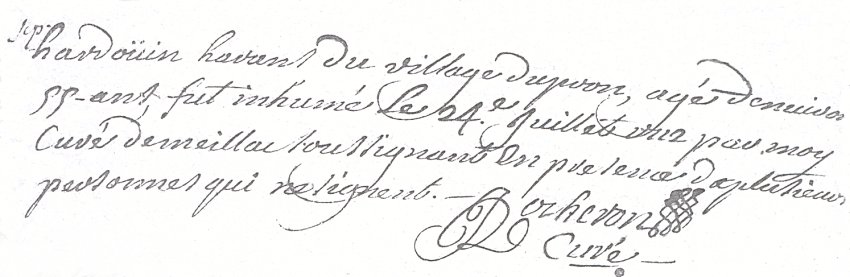 sep.
hardoüin havant du village dupron, agé denuiron
55-ans, fut inhumé Le 24.e Juillet par moy
Curé demeillac soussignant En presence deplusieurs
personnes qui ne signent. —
Rocheron
Curé —